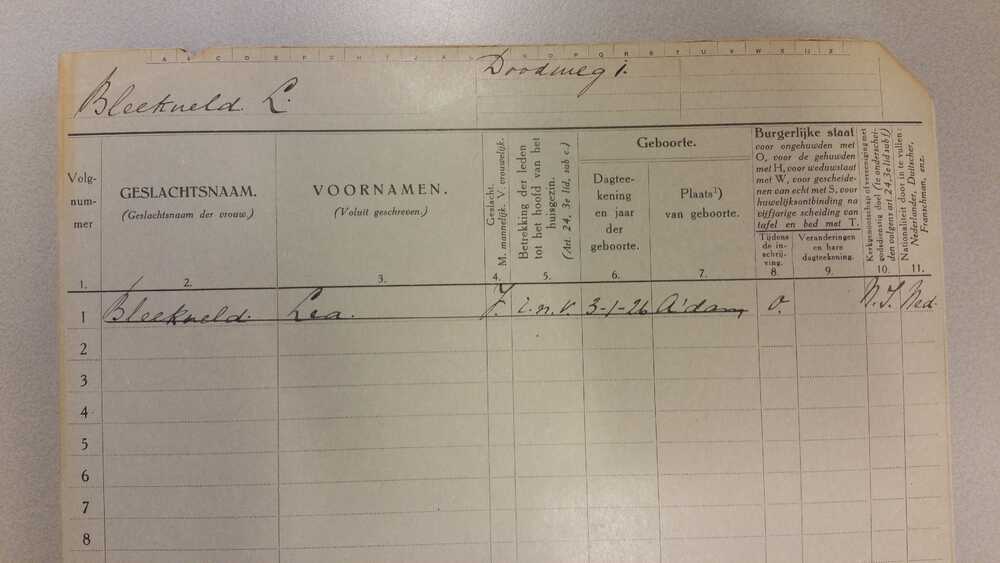 A B C D E F G H I J K L M N O P Q R S T U V W X IJ Z
Doodweg 1.
Bleekveld L.
Volg-
num-
mer
GESLACHTSNAAM.
(Geslachtsnaam der vrouw.)
VOORNAMEN.
(Voluit geschreven.)
Geslacht.
M. mannelijk. V. vrouwelijk.
Betrekking der leden
tot het hoofd van het
huisgezin.
(Art. 24, 3e lid, sub c.)
Geboorte.
Dagtee-
kening
en jaar
der
geboorte.
Plaats¹)
van geboorte.
Burgerlijke staat
voor ongehuwden met
O, voor de gehuwden
met H, voor weduwstaat
met W, voor gescheide-
nen van echt met S, voor
huwelijksontbinding na
vijfjarige scheiding van
tafel en bed met T.
Tijdens
de in-
schrij-
ving.
Veranderingen
en hare
dagteekening.
Kerkgenootschap of vereeniging met
godsdienstig doel (te onderschei-
den volgens art. 24, 3e lid sub f)
Nationaliteit door in te vullen:
Nederlander, Duitscher,
Franschman, enz.
1. 2. 3. 4. 5. 6. 7. 8. 9. 10. 11.
1 Bleekveld Lea. V. i.n.v. 3-1-26 A'dam O. N.I. Ned.
2
3
4
5
6
7
8